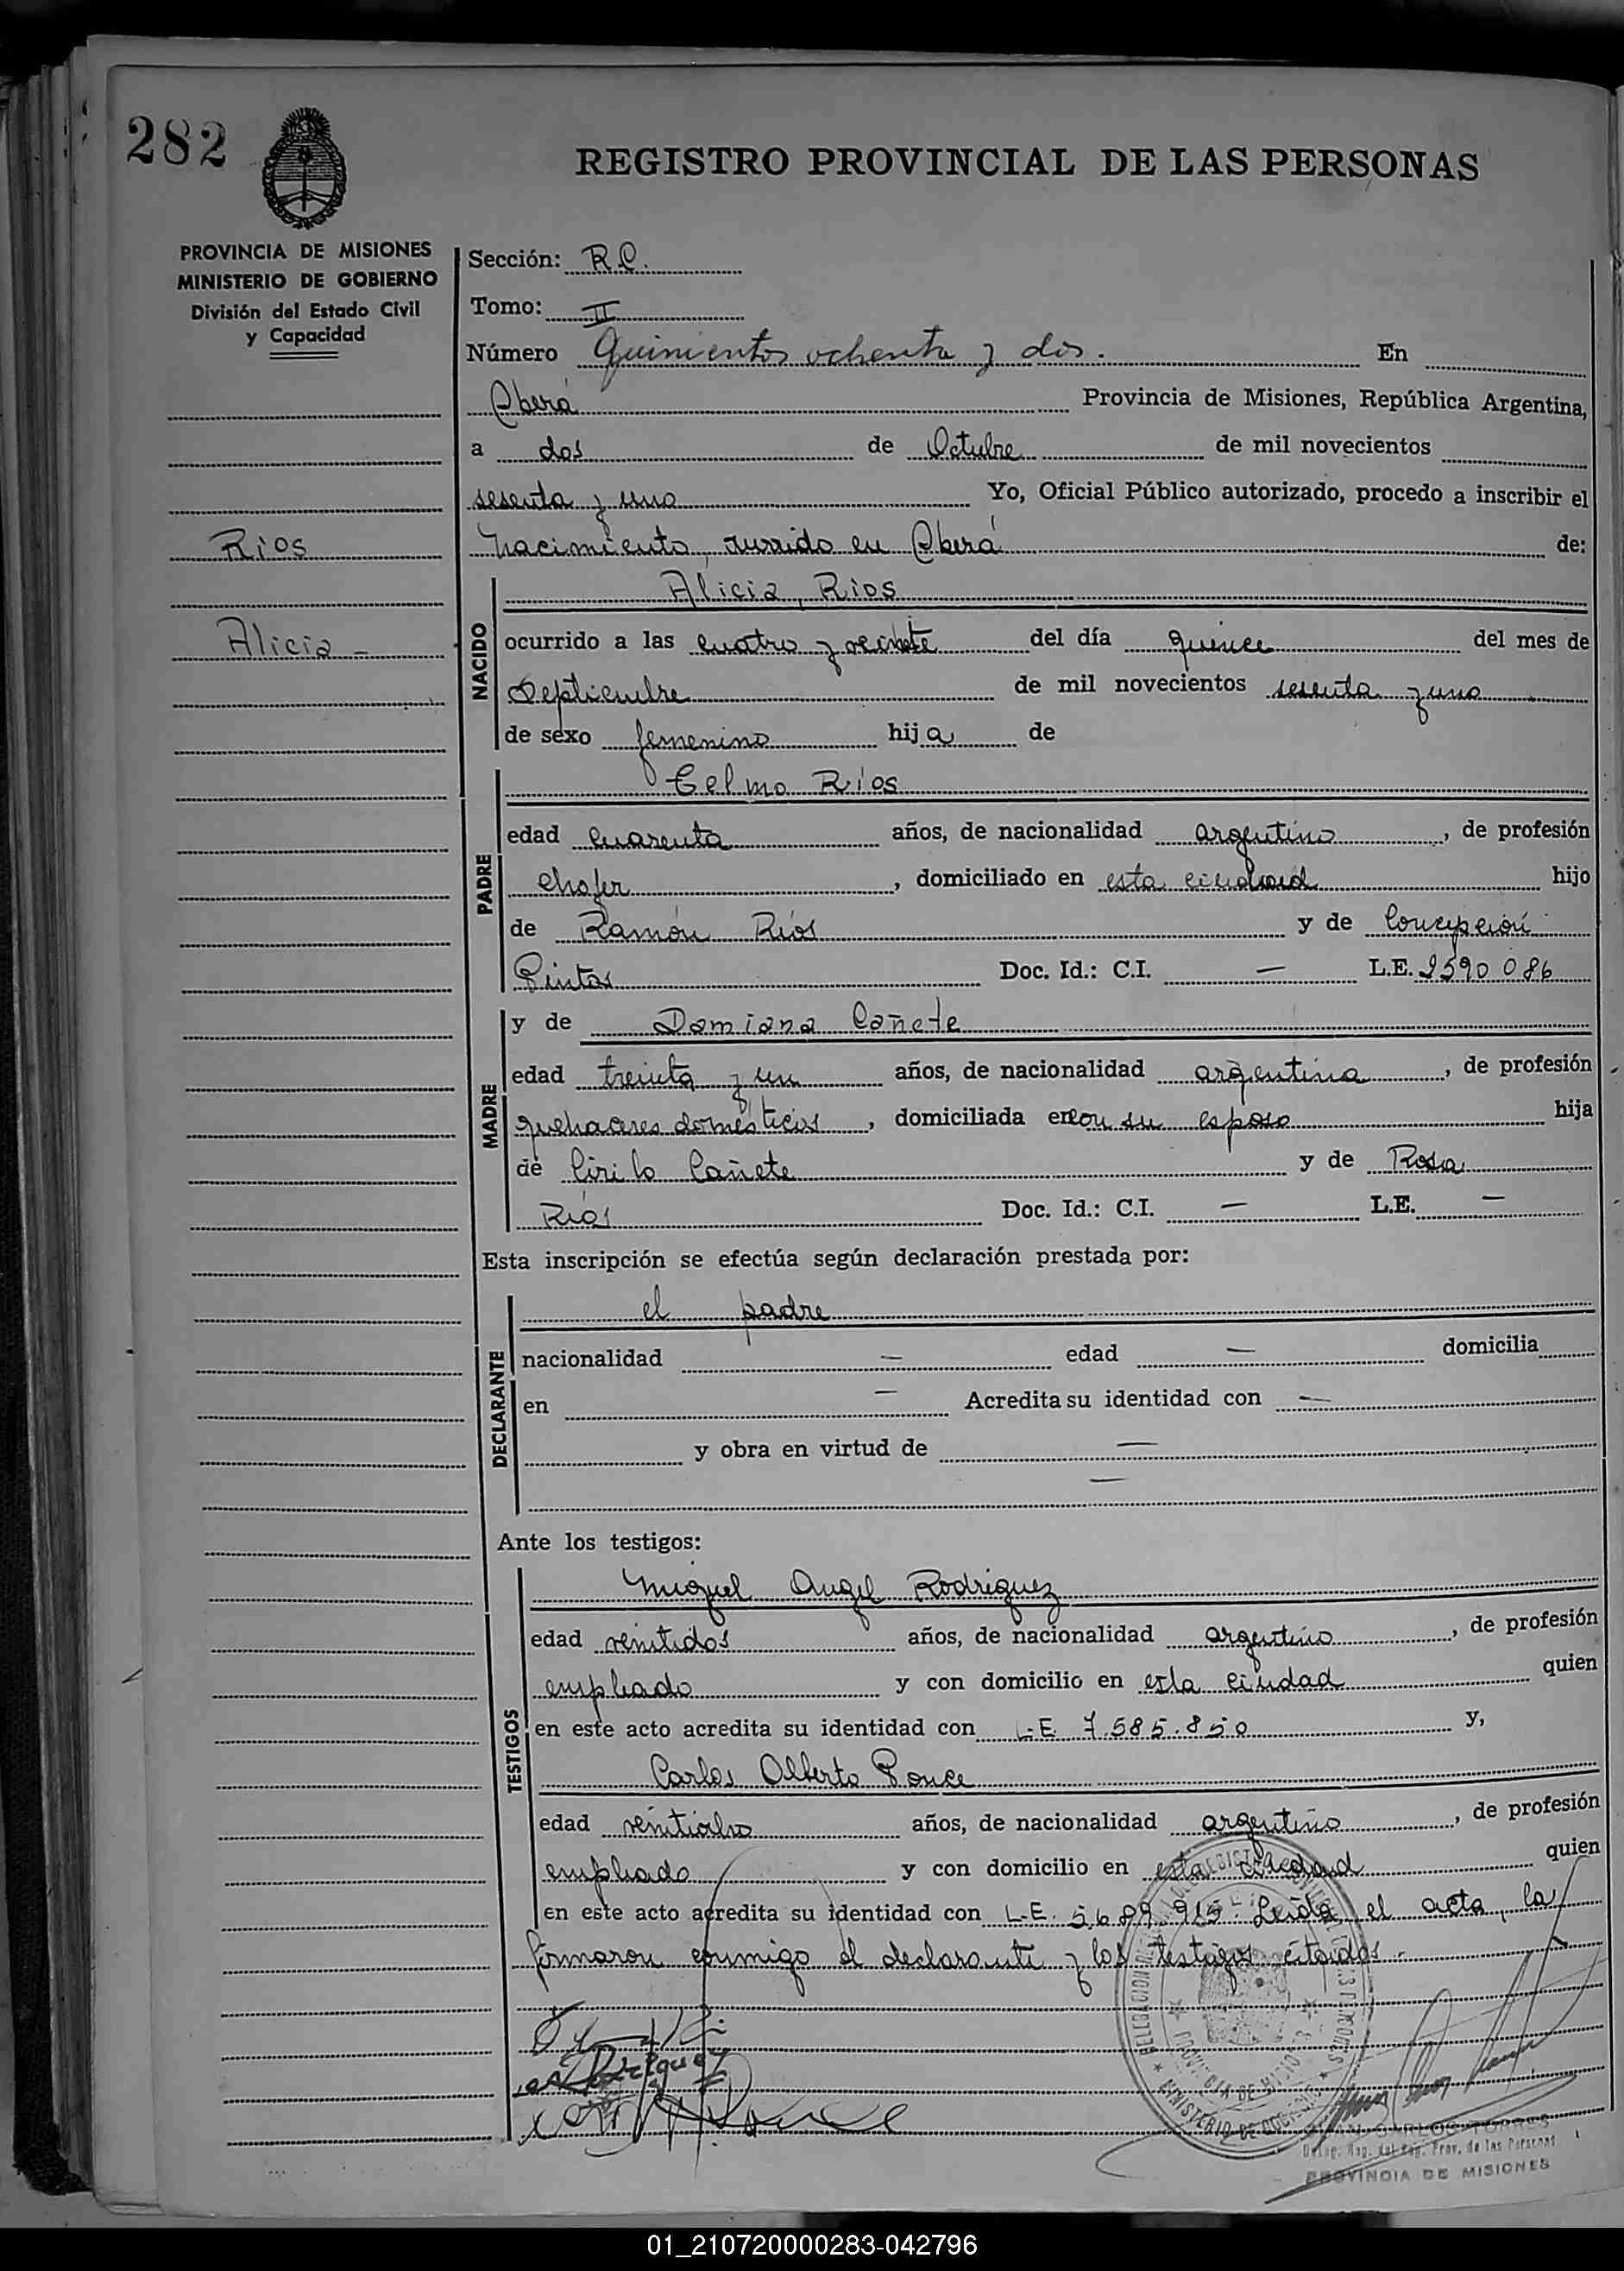 282
REGISTRO PROVINCIAL DE LAS PERSONAS
PROVINCIA DE MISIONES
MINISTERIO DE GOBIERNO
División del Estado Civil
y Capacidad
Rios
Alicia -
Sección: R.C.
Tomo: II
Número Quinientos ochenta y dos. En
Oberá Provincia de Misiones, República Argentina,
a dos de Octubre de mil novecientos
sesenta y uno Yo, Oficial Público autorizado, procedo a inscribir el
nacimiento, ocurrido en Oberá de:
NACIDO
Alicia, Rios
ocurrido a las cuatro y veinte del día quince del mes de
Septiembre de mil novecientos sesenta y uno
de sexo femenino hija de
PADRE
Celmo Rios
edad cuarenta años, de nacionalidad argentino, de profesión
chofer, domiciliado en esta ciudad hijo
de Ramón Ríos y de Concepción
Pintos Doc. Id.: C.I. — L.E. 2590086
MADRE
y de Damiana Cañete
edad treinta y un años, de nacionalidad argentina, de profesión
quehaceres domésticos, domiciliada en con su esposo hija
de Cirilo Cañete y de Rosa
Ríos Doc. Id.: C.I. — L.E. —
Esta inscripción se efectúa según declaración prestada por:
DECLARANTE
el padre
nacionalidad — edad — domicilia
en — Acredita su identidad con —
y obra en virtud de —
—
Ante los testigos:
TESTIGOS
Miguel Angel Rodriguez
edad veintidos años, de nacionalidad argentino, de profesión
empleado y con domicilio en esta ciudad quien
en este acto acredita su identidad con L.E. 7.585.850 y,
Carlos Alberto Ponce
edad veintiocho años, de nacionalidad argentino, de profesión
empleado y con domicilio en esta ciudad quien
en este acto acredita su identidad con L.E. 5.689.915 Leída el acta, la
firmaron conmigo el declarante y los testigos citados.-
JUAN CARLOS TORRES
Deleg. Reg. del Reg. Prov. de las Personas
PROVINCIA DE MISIONES
01_210720000283-042796